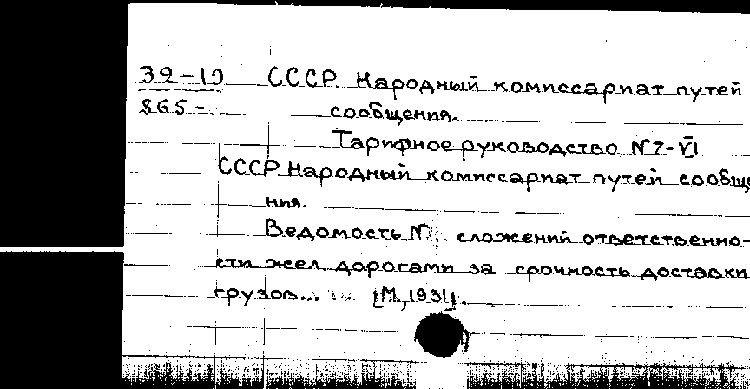 39-10 СССР. Народный комиссариат путей
865- сообщения.
Тарифное руководство №7-VI
СССР. Народный комиссариат путей сообще
ния.
Ведомость № сложений ответственно-
сти жел. дорогами за срочность доставки
грузов... [М., 1931].